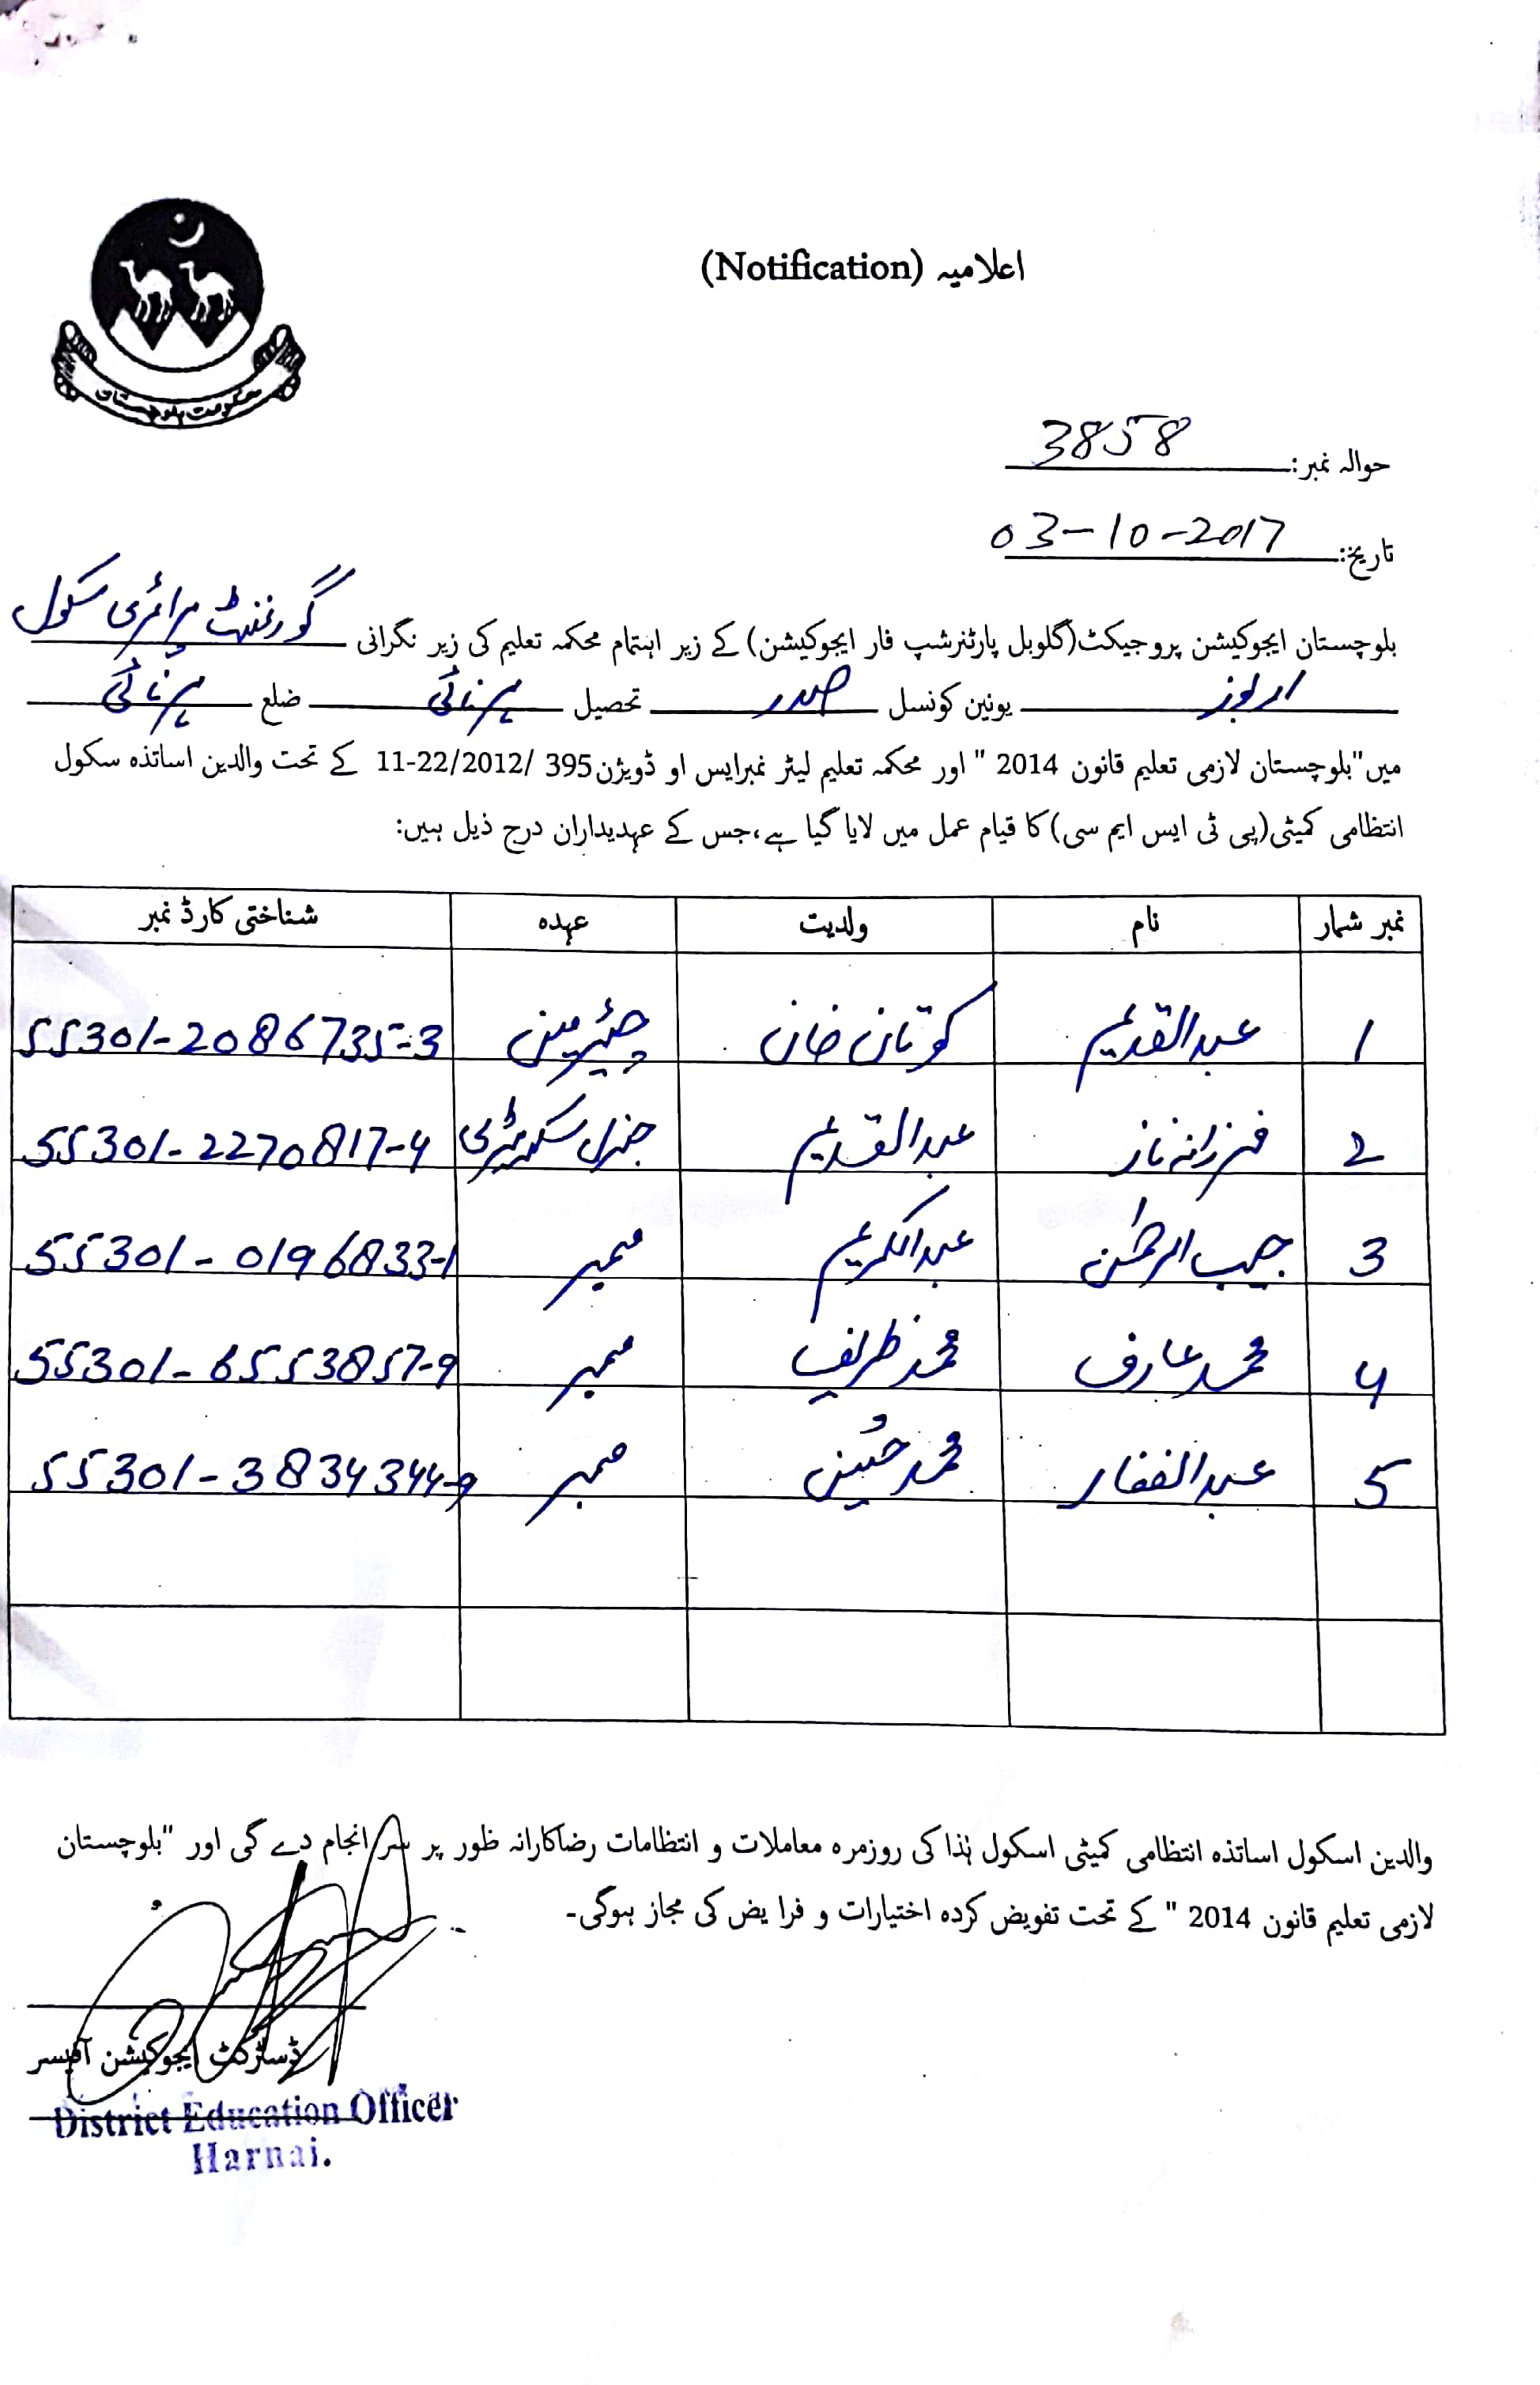 حکومت بلوچستان
اعلامیہ (Notification)
حوالہ نمبر: 3858
تاریخ: 03-10-2017
بلوچستان ایجوکیشن پروجیکٹ(گلوبل پارٹنرشپ فار ایجوکیشن) کے زیر اہتمام محکمہ تعلیم کی زیر نگرانی گورنمنٹ پرائمری سکول
یونین کونسل صدر تحصیل ہرنائی ضلع ہرنائی
میں"بلوچستان لازمی تعلیم قانون 2014 " اور محکمہ تعلیم لیٹر نمبرایس او ڈویژن395 /11-22/2012 کے تحت والدین اساتذہ سکول
انتظامی کمیٹی(پی ٹی ایس ایم سی) کا قیام عمل میں لایا گیا ہے،جس کے عہدیداران درج ذیل ہیں:
نمبر شمار نام ولدیت عہدہ شناختی کارڈ نمبر
1 عبدالقدیم کوتان خان چئیرمین 55301-2086735-3
2 فرزانہ ناز عبدالقدیم جنرل سکریٹری 55301-2270817-4
3 حبیب الرحمٰن عبدالکریم ممبر 55301-0196833-1
4 محمد عارف محمد ظریف ممبر 55301-6553857-9
5 عبدالغفار محمد حسین ممبر 55301-3834344-9
والدین اسکول اساتذہ انتظامی کمیٹی اسکول ہٰذا کی روزمرہ معاملات و انتظامات رضاکارانہ ظور پر سر انجام دے گی اور "بلوچستان
لازمی تعلیم قانون 2014 " کے تحت تفویض کردہ اختیارات و فرایض کی مجاز ہوگی۔
ڈسٹرکٹ ایجوکیشن آفیسر
District Education Officer
Harnai.